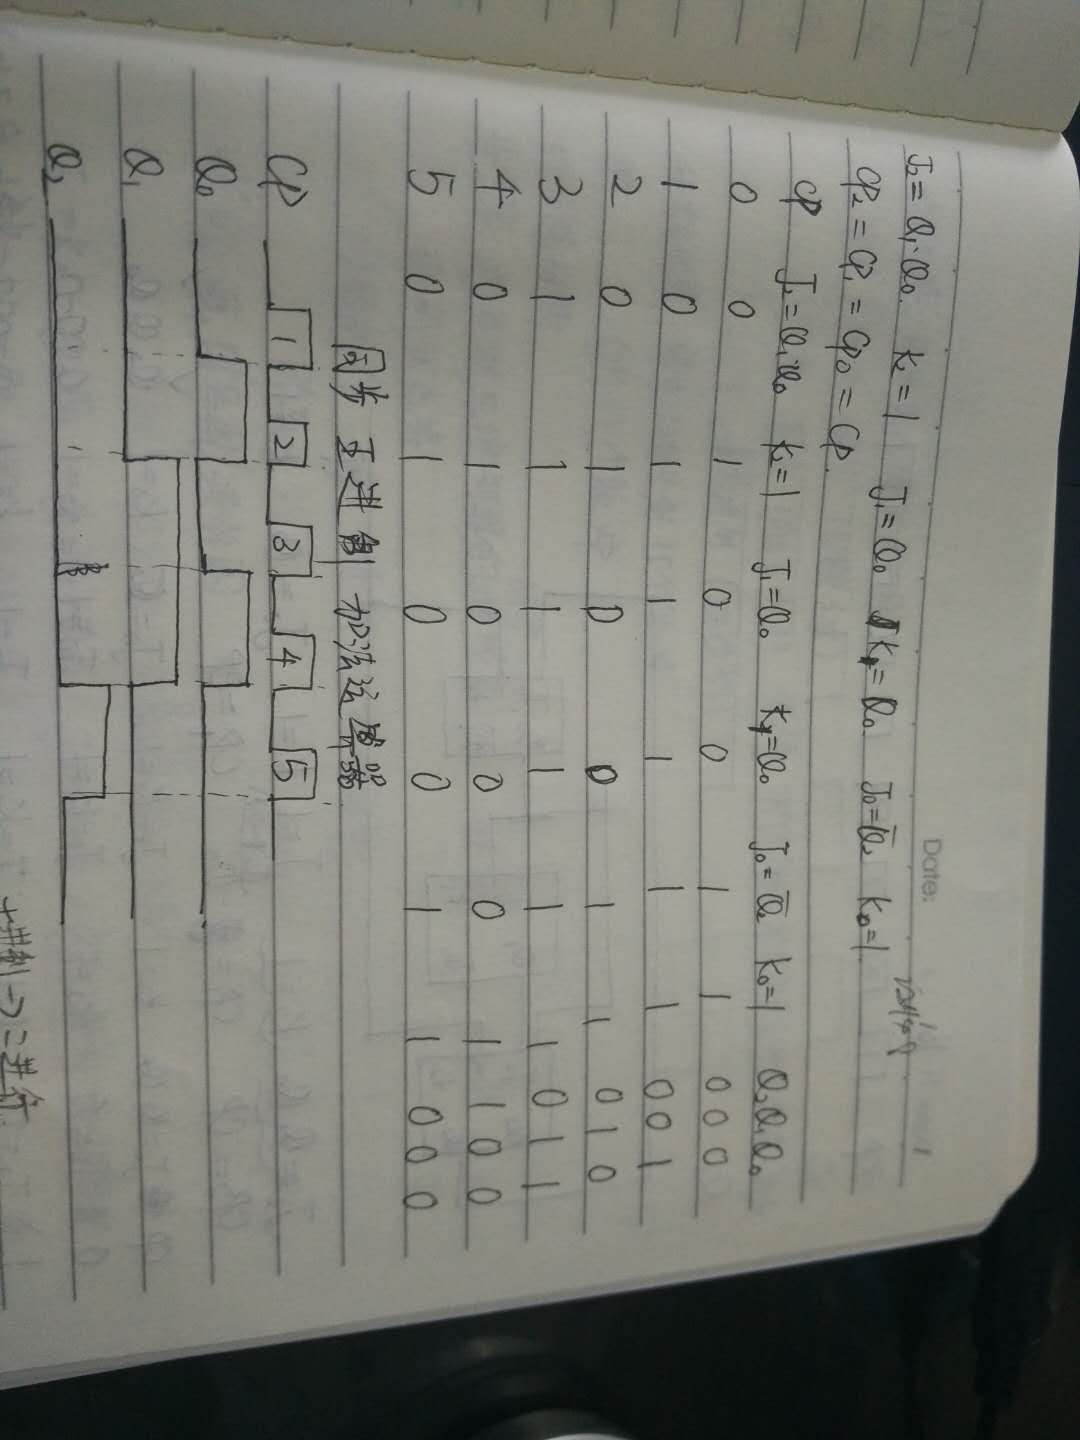 Date:
J₂=Q₁·Q₀ K₂=1 J₁=Q₀ K₁=Q₀ J₀=Q̄₂ K₀=1
CP₂=CP₁=CP₀=CP
CP J₂=Q₁·Q₀ K₂=1 J₁=Q₀ K₁=Q₀ J₀=Q̄₂ K₀=1 Q₂Q₁Q₀
0 0 1 0 0 1 1 0 0 0
1 0 1 1 1 1 1 0 0 1
2 0 1 0 0 1 1 0 1 0
3 1 1 1 1 1 1 0 1 1
4 0 1 0 0 0 1 1 0 0
5 0 1 0 0 1 1 0 0 0
同步 五进制 加法计数器
CP 1 2 3 4 5
Q₀
Q₁
Q₂
十进制→二进制